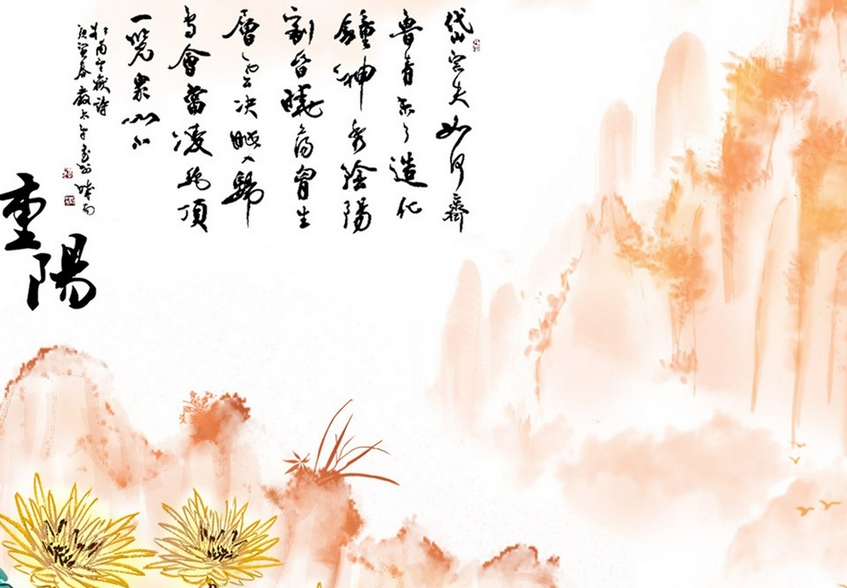 岱宗夫如何齊
魯青未了造化
鍾神秀陰陽
割昏曉蕩胸生
層雲決眥入歸
鳥會當凌絕頂
一覽眾山小
杜甫望嶽詩
庚寅春
重陽